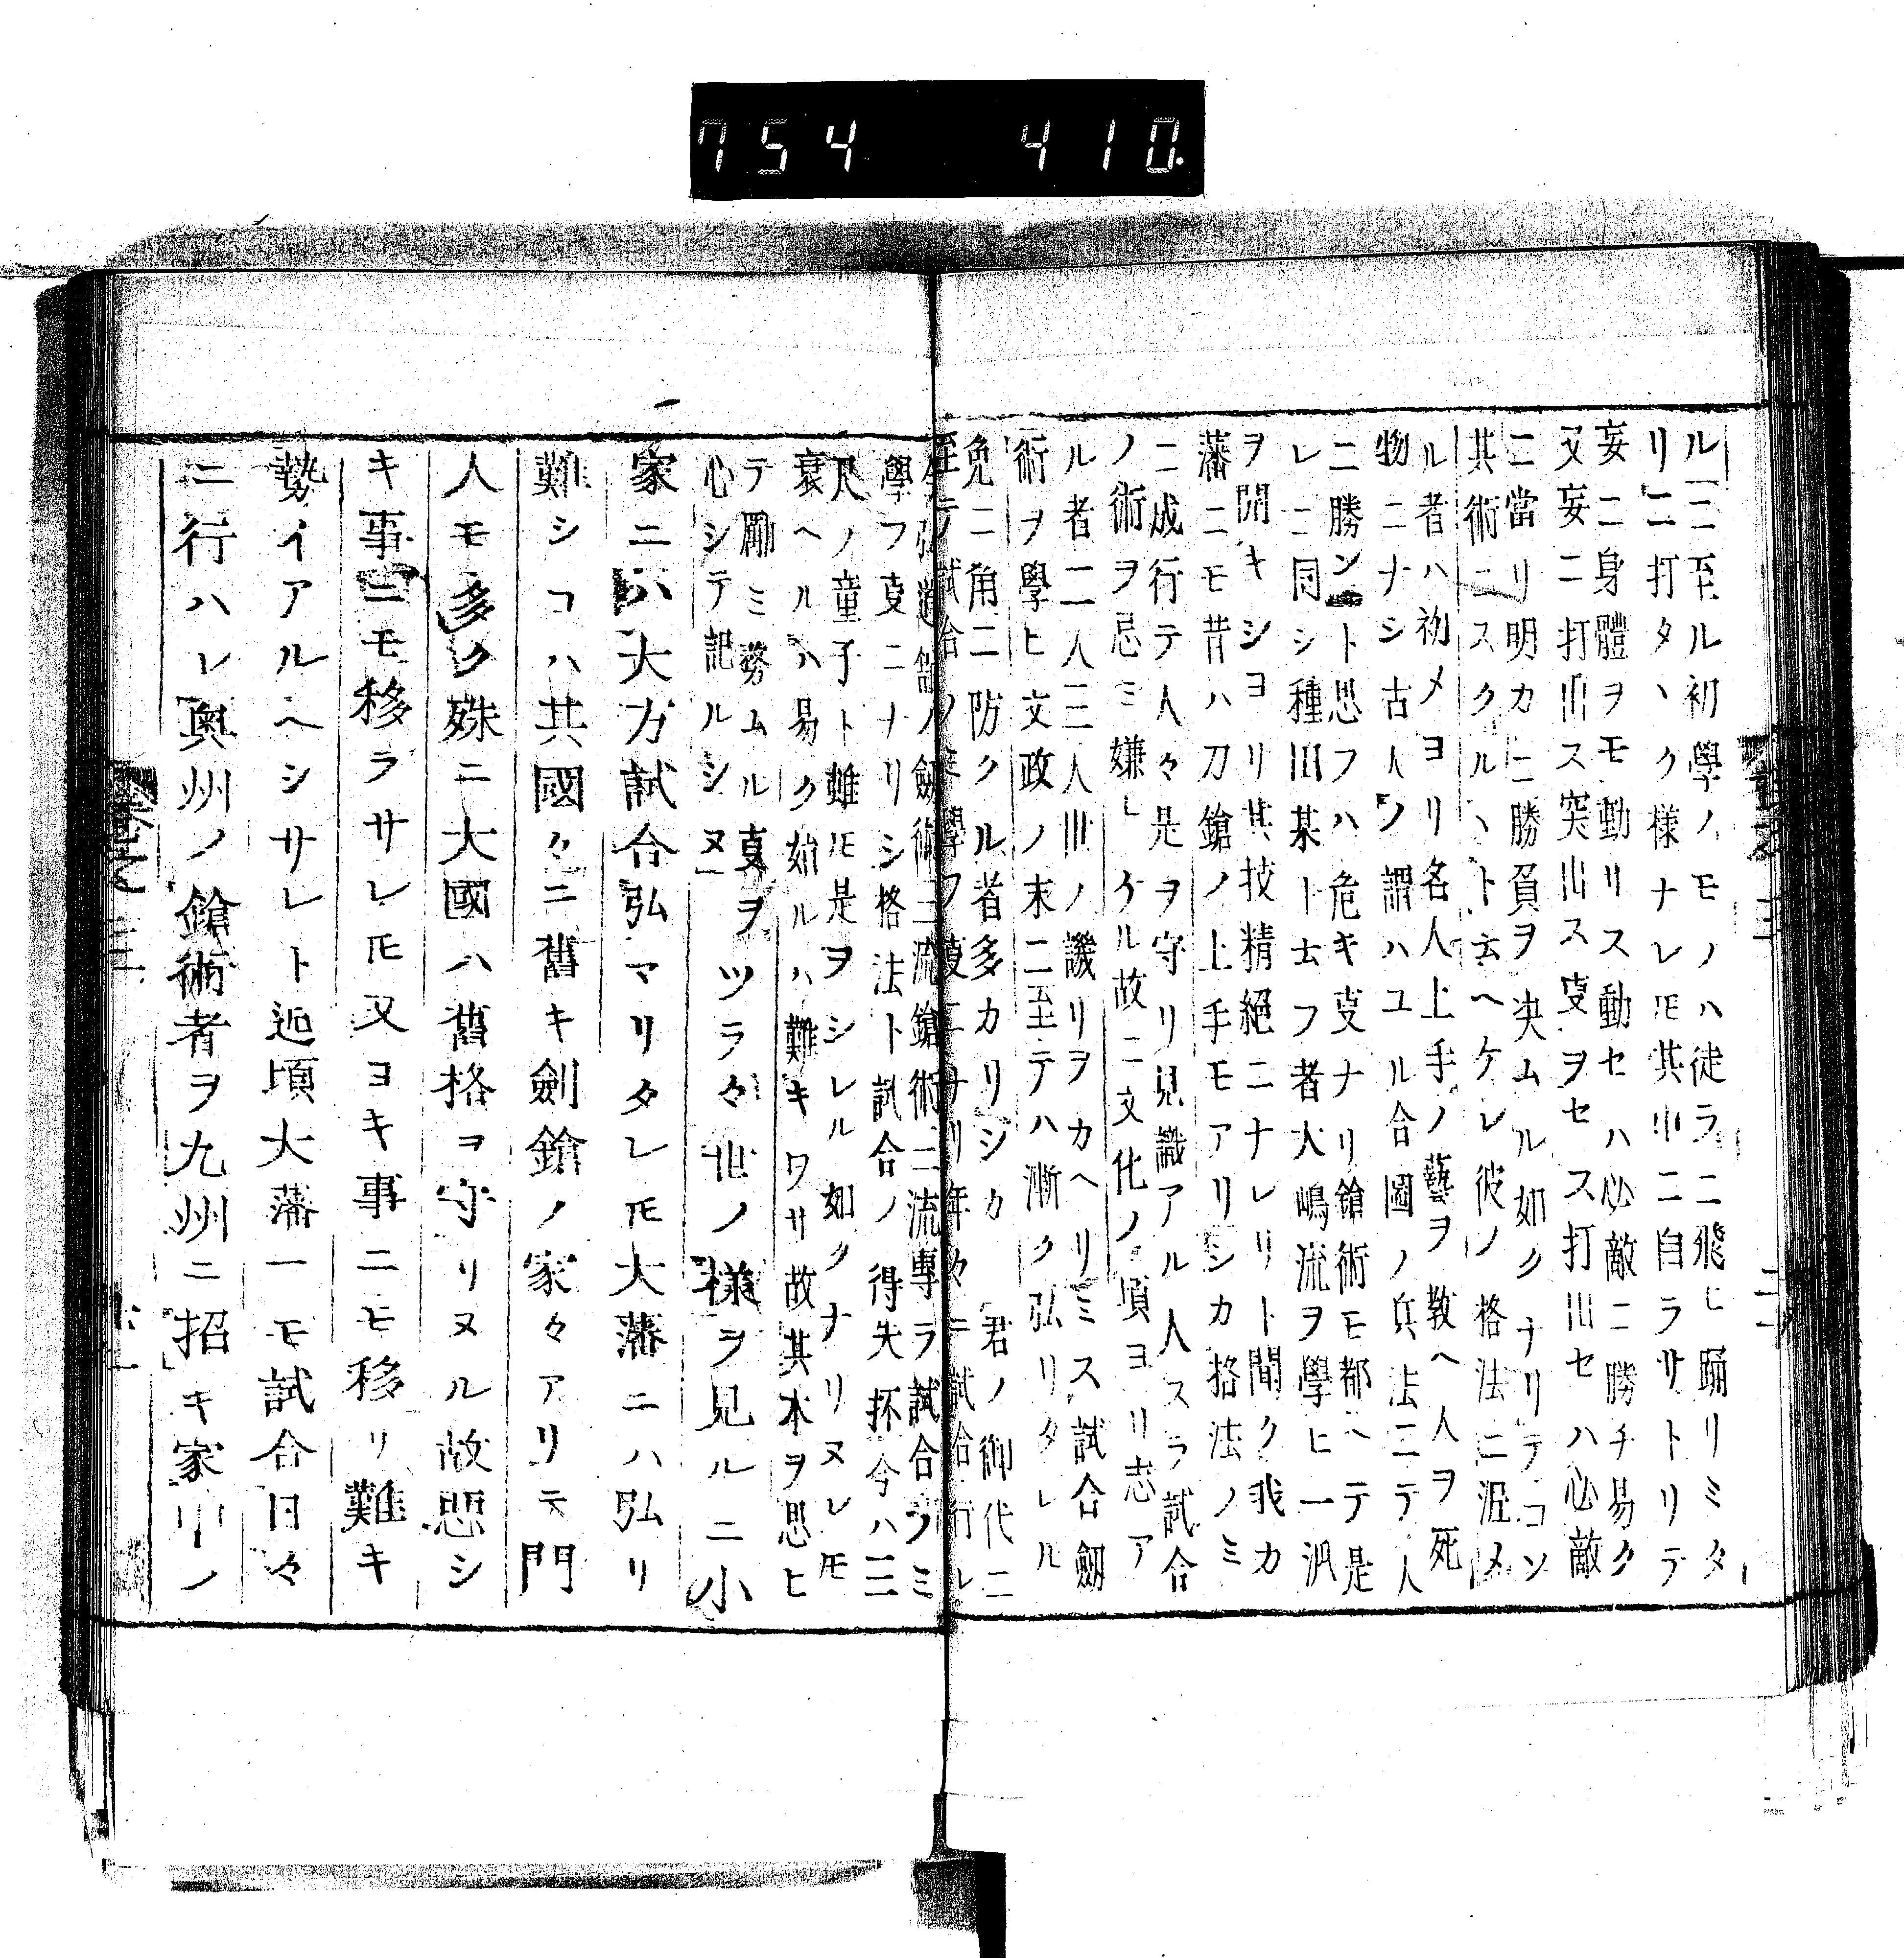 754 410.
ルニ至ル初學ノモノハ徒ラニ飛ヒ踊リミタ
リニ打タヽク樣ナレ𪜈其中ニ自ラサトリテ
妄ニ身體ヲモ動リス動セハ必敵ニ勝チ易ク
又妄ニ打出ス突出ス𫝑ヲセス打出セハ必敵
ニ當リ明カニ勝負ヲ決ムル如クナリテコソ
其術ニスクルヽト云ヘケレ彼ノ格法ニ泥メ
ル者ハ初メヨリ名人上手ノ藝ヲ教ヘ人ヲ死
物ニナシ古人ノ謂ハユル合圖ノ兵法ニテ人
ニ勝ント思フハ危キ叓ナリ鎗術モ都ヘテ是
レニ同シ種田某ト云フ者大嶋流ヲ學ヒ一派
ヲ開キシヨリ其技精絕ニナレリト聞ク我カ
藩ニモ昔ハ刀鎗ノ上手モアリシカ格法ノミ
ニ成行テ人々是ヲ守リ見識アル人スラ試合
ノ術ヲ忌ミ嫌ヒケル故ニ文化ノ頃ヨリ志ア
ル者二人三人世ノ譏リヲカヘリミス試合劔
術ヲ學ヒ文政ノ末ニ至テハ漸ク弘リタレル
免ニ角ニ防クル者多カリシカ 君ノ御代ニ
至テ試合ノ
學フ叓ニナリシ格法ト試合ノ得失抔今ハ三
尺ノ童子ト雖𪜈是ヲシレル如クナリヌレ𪜈
衰ヘルハ易ク始ルハ難キワサ故其本ヲ思ヒ
テ勵ミ務ムル叓ヲツラ々世ノ樣ヲ見ルニ小
心シテ記ルシヌ
家ニハ大方試合弘マリタレ𪜈大藩ニハ弘リ
難シコハ其國々ニ舊キ劍鎗ノ家々アリテ門
人モ多ク殊ニ大國ハ舊格ヲ守リヌル故惡シ
キ事ニモ移ラサレ𪜈又ヨキ事ニモ移リ難キ
勢イアルヘシサレト近頃大藩一モ試合日々
ニ行ハレ奧州ノ鎗術者ヲ九州ニ招キ家中ノ